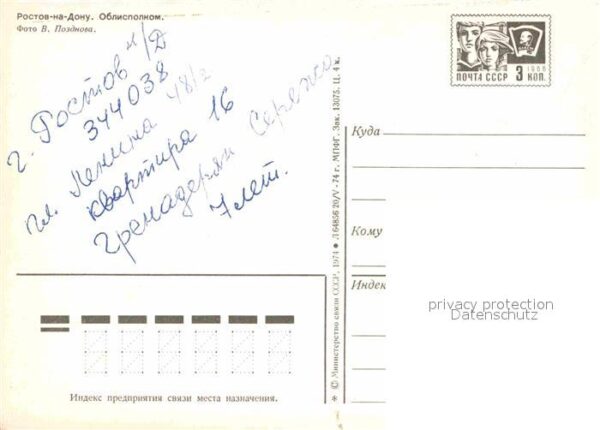 Ростов-на-Дону. Облисполком.
Фото В. Позднова.
г. Ростов н/Д
344038
пл. Ленина 48/2
квартира 16
Гренадерян Сережа
7 лет.
Индекс предприятия связи места назначения.
* © Министерство связи СССР, 1974 * Л 64856 20/V-74 г. МПФГ. Зак. 13075. Ц. 4 к.
1966
ПОЧТА СССР 3 КОП.
Куда
Кому
Индек
privacy protection
Datenschutz